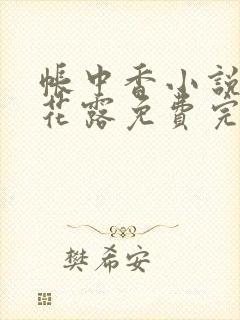 帳中香小說
花露免費完
樊希安